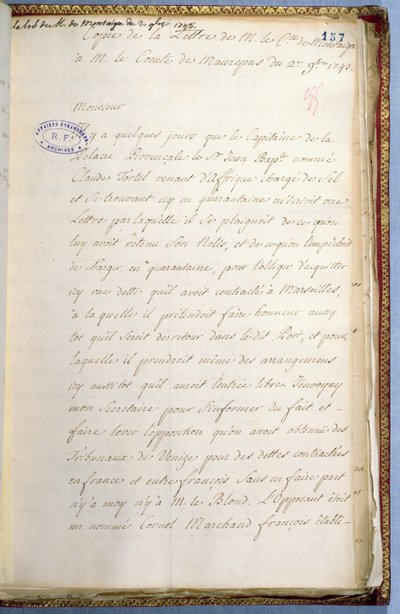 la Lre de M. de Montaigu du 2. 9bre 1743.
157
Copie de la Lettre de M. le Cte de Montaigu
à M. le Comte de Maurepas du 2e 9bre 1743.
Monsieur
AFFAIRES ETRANGERES
R.F.
ARCHIVES
Il y a quelques jours que le Capitaine de la
Polacre Provençale le Sr Jean Bapte nommé
Claude Tortel venant d'affrique chargé de Sel
et se trouvant icy en quarantaine m'écrivit une
Lettre par laquelle il se plaignoit de ce qu'on
luy avoit retenu son Nolis, et de ce qu'on l'empêchoit
de charger en quarantaine, pour l'obliger d'acquitter
icy une dette qu'il avoit contracté à Marseilles,
à la quelle il prétendoit faire honneur aussy
tot qu'il seroit de retour dans le dit Port, et pour
laquelle il prendroit même des arrangemens
icy aussitot qu'il auroit l'entrée libre. J'envoyay
mon Secretaire pour s'informer du fait et
faire lever l'opposition qu'on avoit obtenüe des
Tribunaux de Venize pour des dettes contractées
en france et entre françois sans en faire part
n'y à moy n'y à M. le Blond. L'Opposant étoit
un nommé Cornel Marchand françois établi-